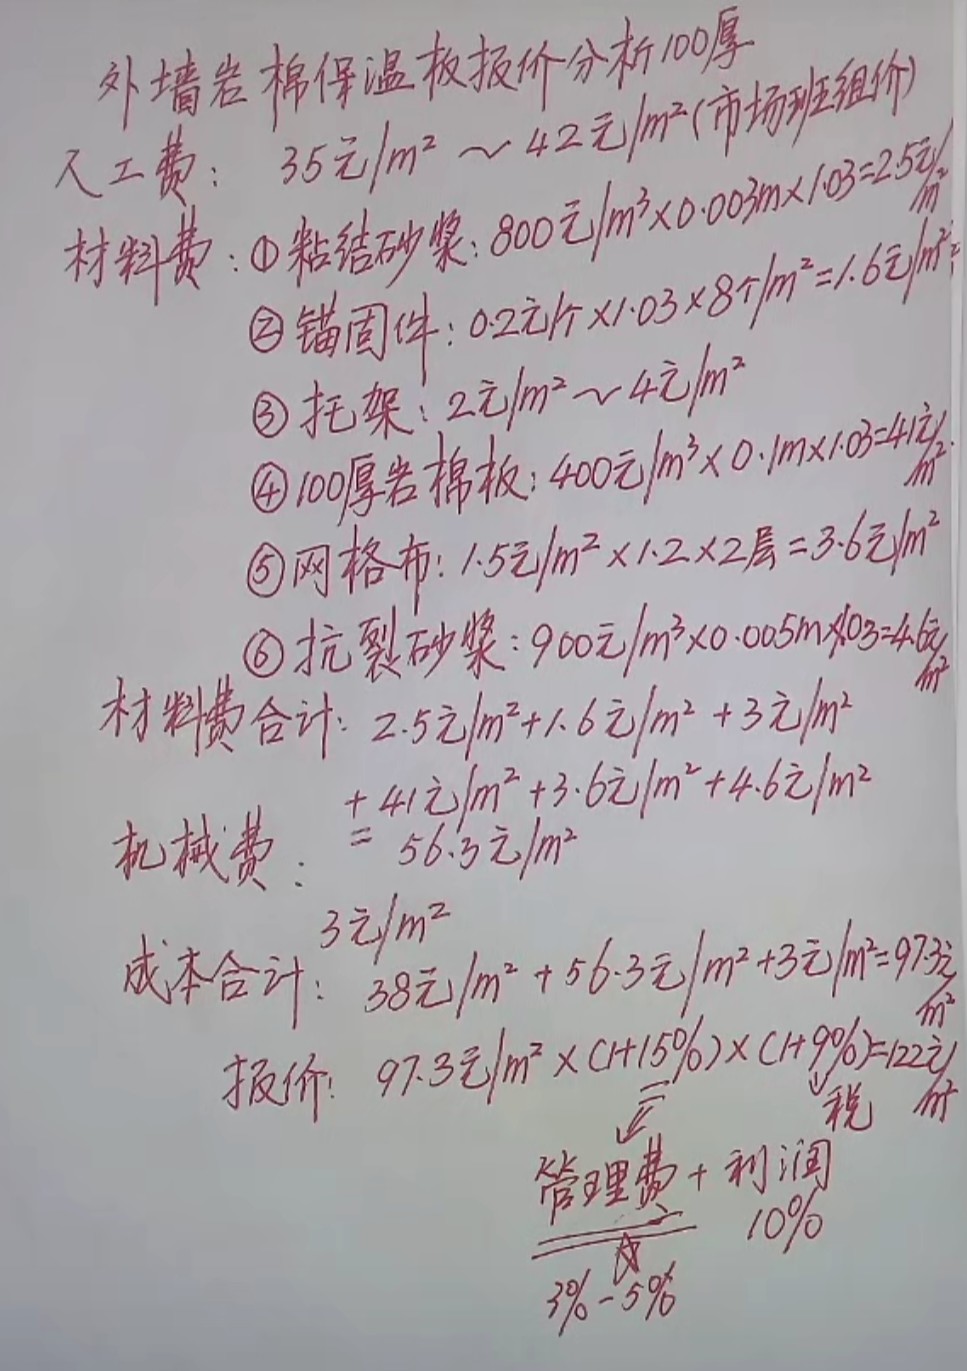 外墙岩棉保温板报价分析100厚
人工费: 35元/m² ~ 42元/m²(市场班组价)
材料费: ①粘结砂浆: 800元/m³×0.003m×1.03=2.5元/m²
②锚固件: 0.2元/个×1.03×8个/m²=1.6元/m²
③托架: 2元/m² ~ 4元/m²
④100厚岩棉板: 400元/m³×0.1m×1.03=41元/m²
⑤网格布: 1.5元/m²×1.2×2层=3.6元/m²
⑥抗裂砂浆: 900元/m³×0.005m×1.03=4.6元/m²
材料费合计: 2.5元/m²+1.6元/m²+3元/m²
+41元/m²+3.6元/m²+4.6元/m²
= 56.3元/m²
机械费:
3元/m²
成本合计: 38元/m²+56.3元/m²+3元/m²=97.3元/m²
报价: 97.3元/m²×(1+15%)×(1+9%)=122元/m²
税
管理费+利润
10%
3%-5%